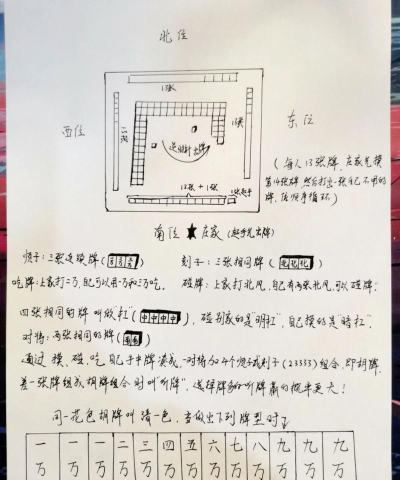 北位
13张
西位
13张
逆时针出牌
13张
东位
13张 + 1张
(每人13张牌,庄家先摸
第14张牌,然后打出一张自己不用的
牌,依顺序循环)
南位 ★ 庄家 (起手先出牌)
顺子:三张连续牌( ) 刻子:三张相同牌(北北北)
吃牌:上家打二万,自己可以用一万和三万吃。 碰牌:上家打北风,自己有两张北风,可以碰牌
四张相同的牌叫做"杠"(中中中中),碰别家的是"明杠",自己摸的是"暗杠"
对将:两张相同的牌( )
通过摸、碰、吃,自己手中牌凑成一对将加4个顺子或刻子(23333)组合,即胡牌
差一张牌组成胡牌组合时叫"听牌",选择牌多的听牌赢的概率更大!
同一花色胡牌叫清一色,当做出下列牌型时
一万 一万 一万 二万 三万 四万 五万 六万 七万 八万 九万 九万 九万